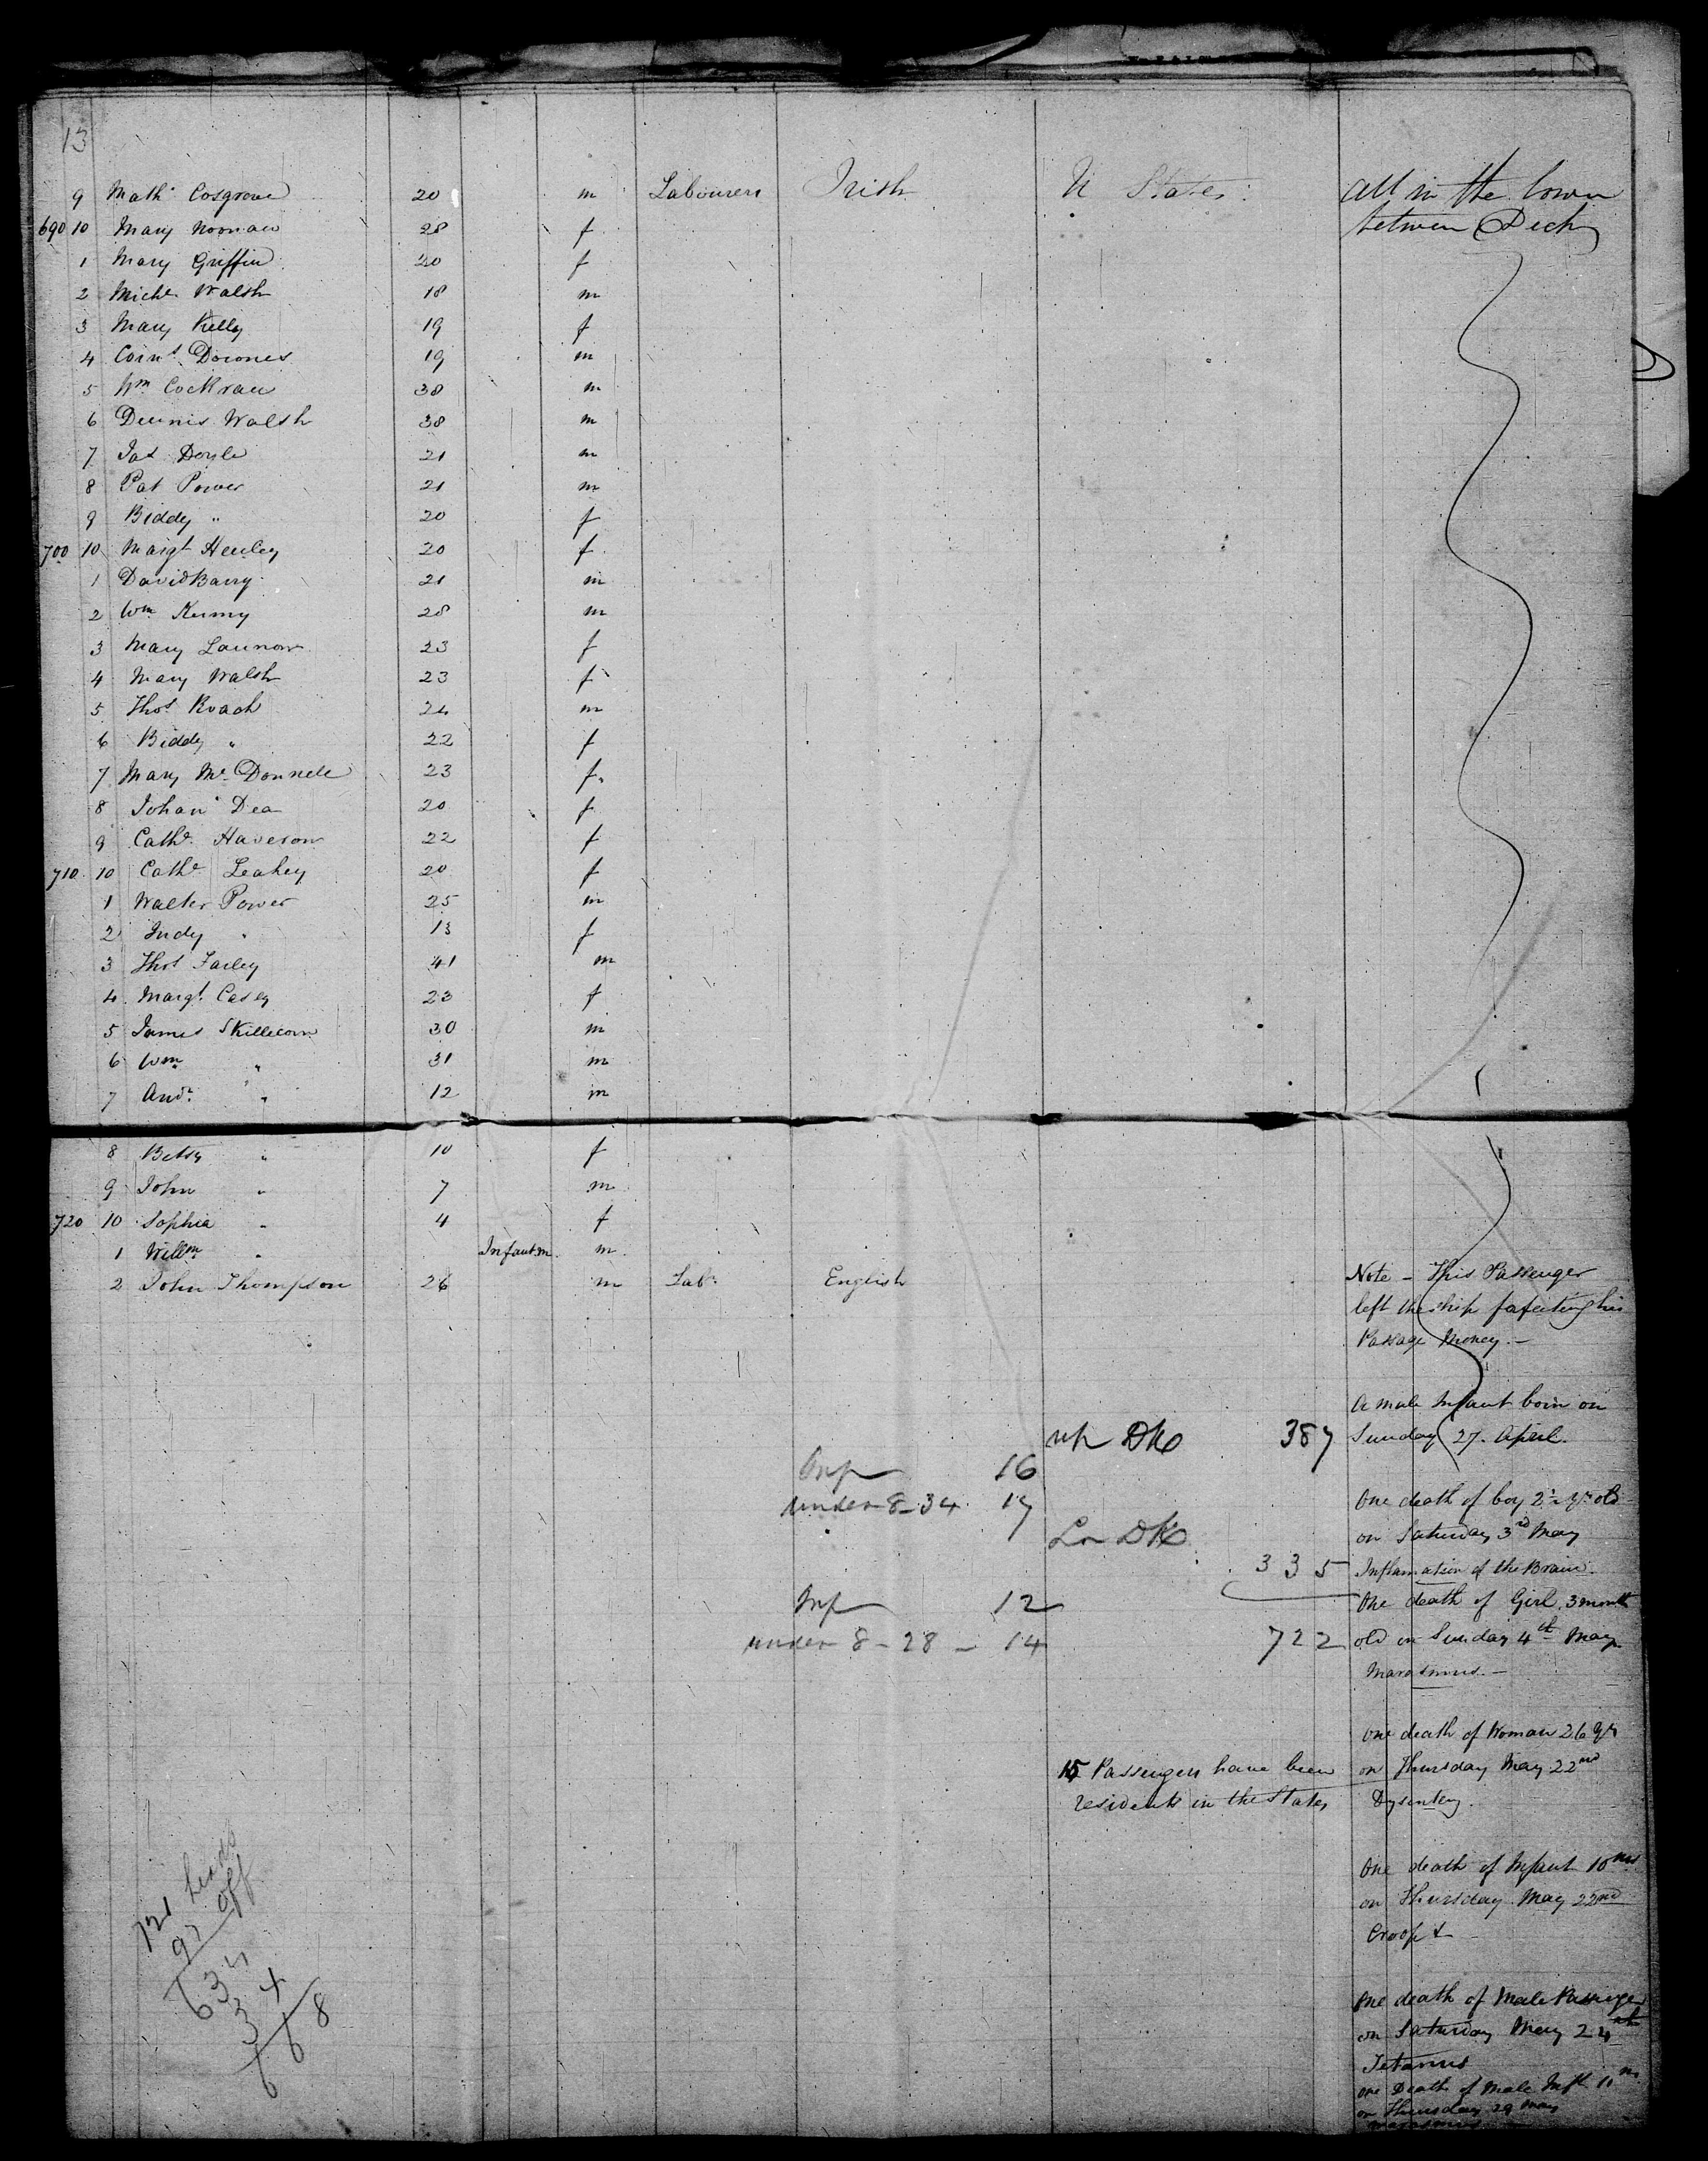 13
9 Math. Cosgrove 20 m Labourers Irish U States. All in the lower
690 10 Mary Noonan 28 f between Deck
1 Mary Griffin 20 f
2 Michl. Walsh 18 m
3 Mary Kelly 19 f
4 Corns. Downes 19 m
5 Wm Cockran 38 m
6 Dennis Walsh 38 m
7 Jas Doyle 21 m
8 Pat Power 21 m
9 Biddy " 20 f
700 10 Margt Henley 20 f
1 David Barry 21 m
2 Wm Kenny 28 m
3 Mary Lannon 23 f
4 Mary Walsh 23 f
5 Thos Roach 24 m
6 Biddy " 22 f
7 Mary Mc Donnell 23 f
8 Johan Dea 20 f
9 Cathe. Haveron 22 f
710 10 Cathe Leahey 20 f
1 Walter Power 25 m
2 Judy " 13 f
3 Thos Farley 41 m
4 Margt. Casey 23 f
5 James Skillicorn 30 m
6 Wm " 31 m
7 Andw. " 12 m
8 Betsy " 10 f
9 John " 7 m
720 10 Sophia " 4 f
1 Willm " Infant m. m
2 John Thompson 26 m Labr. English
Note - This Passenger
left the ship forfeiting his
Passage Money. -
A male Infant born on
Sunday 27. April.
up DK 387
Inf 16
under 8 - 34 17
Lr DK
335
Inf 12
under 8 - 28 - 14
722
One death of boy 2½ yrs old
on Saturday 3rd May
Inflamation of the Brain.
One death of Girl 3 month
old on Sunday 4th May
Marasmus. -
One death of Woman 26 yrs
on Thursday May 22nd
Dysentery.
15 Passengers have been
residents in the States
One death of Infant 10 ms
on Thursday May 22nd
Croop
One death of Male Passenger
on Saturday May 24th
Tetanus
One Death of Male Inft 11 m
on Thursday 29 May
Marasmus
721 heads
97 off
634
34
668